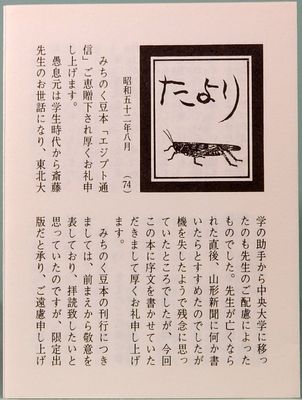 たより
昭和五十二年八月　(74)
みちのく豆本「エジプト通
信」ご恵贈下され厚くお礼申
し上げます。
愚息元は学生時代から斎藤
先生のお世話になり、東北大
学の助手から中央大学に移っ
たのも先生のご配慮によった
ものでした。先生が亡くなら
れた直後、山形新聞に何か書
いたらとすすめたのでしたが
機を失したようで残念に思っ
ていたところでしたが、今回
この本に序文を書かせていた
だきまして厚くお礼申し上げ
ます。
みちのく豆本の刊行につき
ましては、前まえから敬意を
表しており、拝読致したいと
思っていたのですが、限定出
版だと承り、ご遠慮申し上げ